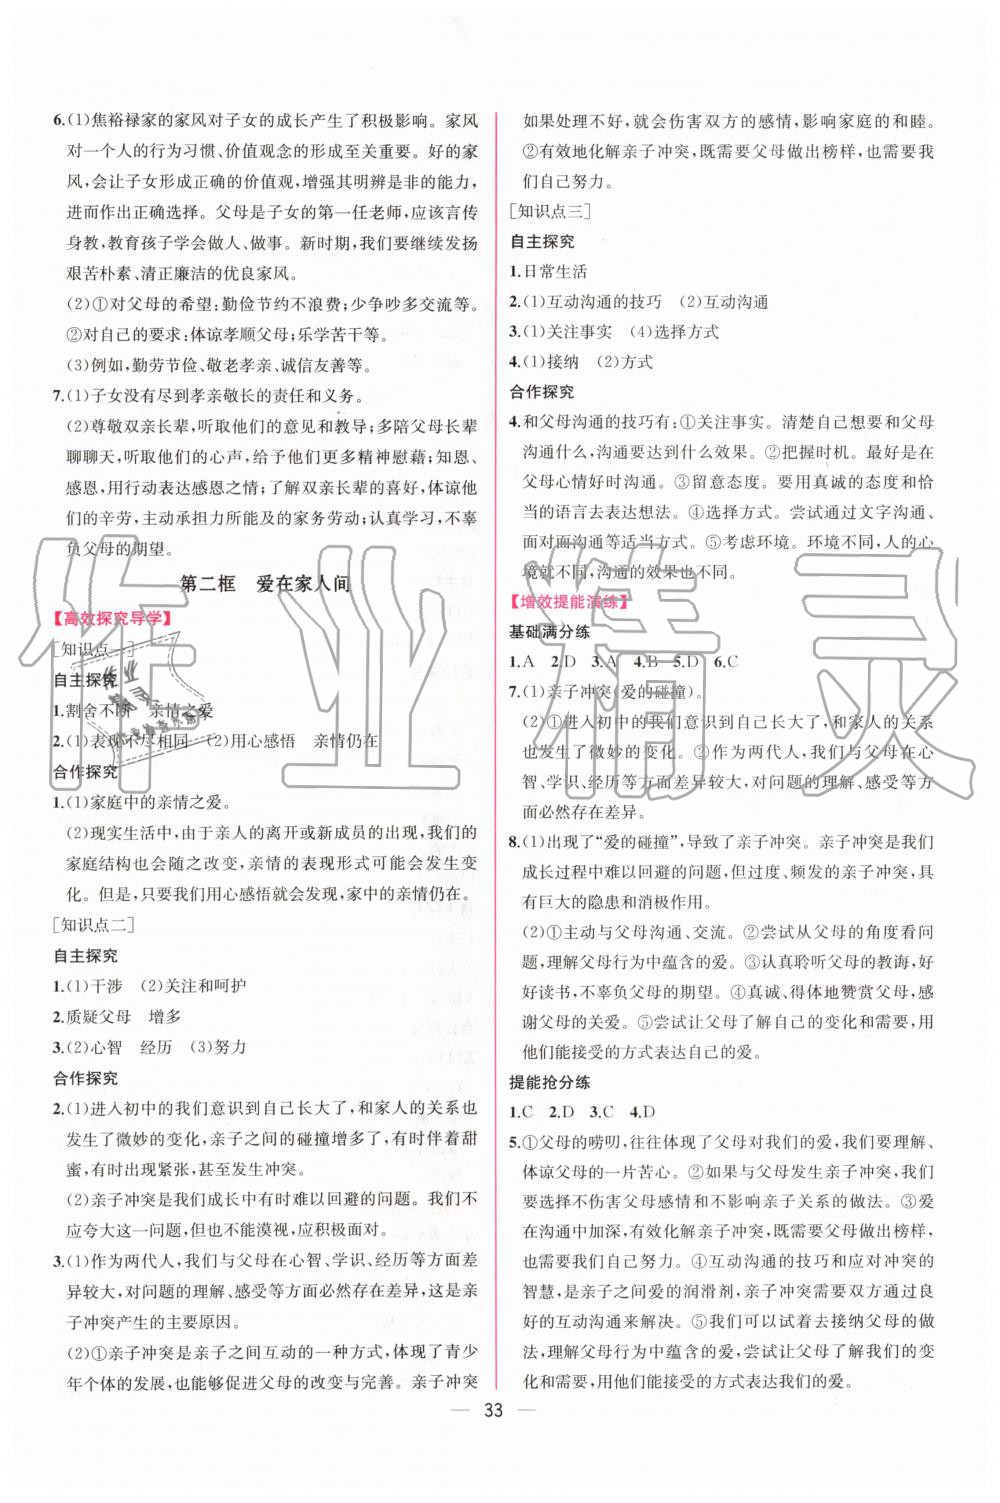 6.(1)焦裕禄家的家风对子女的成长产生了积极影响。家风
对一个人的行为习惯、价值观念的形成至关重要。好的家
风,会让子女形成正确的价值观,增强其明辨是非的能力,
进而作出正确选择。父母是子女的第一任老师,应该言传
身教,教育孩子学会做人、做事。新时期,我们要继续发扬
艰苦朴素、清正廉洁的优良家风。
(2)①对父母的希望:勤俭节约不浪费;少争吵多交流等。
②对自己的要求:体谅孝顺父母;乐学苦干等。
(3)例如,勤劳节俭、敬老孝亲、诚信友善等。
7.(1)子女没有尽到孝亲敬长的责任和义务。
(2)尊敬双亲长辈,听取他们的意见和教导;多陪父母长辈
聊聊天,听取他们的心声,给予他们更多精神慰藉;知恩、
感恩,用行动表达感恩之情;了解双亲长辈的喜好,体谅他
们的辛劳,主动承担力所能及的家务劳动;认真学习,不辜
负父母的期望。
第二框 爱在家人间
【高效探究导学】
[知识点一]
自主探究
1.割舍不断 亲情之爱
2.(1)表现不尽相同 (2)用心感悟 亲情仍在
合作探究
1.(1)家庭中的亲情之爱。
(2)现实生活中,由于亲人的离开或新成员的出现,我们的
家庭结构也会随之改变,亲情的表现形式可能会发生变
化。但是,只要我们用心感悟就会发现,家中的亲情仍在。
[知识点二]
自主探究
1.(1)干涉 (2)关注和呵护
2.质疑父母 增多
3.(2)心智 经历 (3)努力
合作探究
2.(1)进入初中的我们意识到自己长大了,和家人的关系也
发生了微妙的变化,亲子之间的碰撞增多了,有时伴着甜
蜜,有时也出现紧张,甚至发生冲突。
(2)亲子冲突是我们成长中有时难以回避的问题。我们不
应夸大这一问题,但也不能漠视,应积极面对。
3.(1)作为两代人,我们与父母在心智、学识、经历等方面差
异较大,对问题的理解、感受等方面必然存在差异,这是亲
子冲突产生的主要原因。
(2)①亲子冲突是亲子之间互动的一种方式,体现了青少
年个体的发展,也能够促进父母的改变与完善。亲子冲突
如果处理不好,就会伤害双方的感情,影响家庭的和睦。
②有效地化解亲子冲突,既需要父母做出榜样,也需要我
们自己努力。
[知识点三]
自主探究
1.日常生活
2.(1)互动沟通的技巧 (2)互动沟通
3.(1)关注事实 (4)选择方式
4.(1)接纳 (2)方式
合作探究
4.和父母沟通的技巧有:①关注事实。清楚自己想要和父母
沟通什么,沟通要达到什么效果。②把握时机。最好是在
父母心情好时沟通。③留意态度。要用真诚的态度和恰
当的语言去表达想法。④选择方式。尝试通过文字沟通、
面对面沟通等适当方式。⑤考虑环境。环境不同,人的心
境就不同,沟通的效果也不同。
【增效提能演练】
基础满分练
1.A 2.D 3.A 4.B 5.D 6.C
7.(1)亲子冲突(爱的碰撞)。
(2)①进入初中的我们意识到自己长大了,和家人的关系
也发生了微妙的变化。②作为两代人,我们与父母在心
智、学识、经历等方面差异较大,对问题的理解、感受等方
面必然存在差异。
8.(1)出现了“爱的碰撞”,导致了亲子冲突。亲子冲突是我们
成长过程中难以回避的问题,但过度、频发的亲子冲突,具
有巨大的隐患和消极作用。
(2)①主动与父母沟通、交流。②尝试从父母的角度看问
题,理解父母行为中蕴含的爱。③认真聆听父母的教诲,好
好读书,不辜负父母的期望。④真诚、得体地赞赏父母,感
谢父母的关爱。⑤尝试让父母了解自己的变化和需要,用
他们能接受的方式表达自己的爱。
提能抢分练
1.C 2.D 3.C 4.D
5.①父母的唠叨,往往体现了父母对我们的爱,我们要理解、
体谅父母的一片苦心。②如果与父母发生亲子冲突,我们
要选择不伤害父母感情和不影响亲子关系的做法。③爱
在沟通中加深,有效化解亲子冲突,既需要父母做出榜样,
也需要我们自己努力。④互动沟通的技巧和应对冲突的
智慧,是亲子间爱的润滑剂,亲子冲突需要双方通过良
好的互动沟通来解决。⑤我们可以试着去接纳父母的做
法,理解父母行为中蕴含的爱,尝试让父母了解我们的变
化和需要,用他们能接受的方式表达我们的爱。
33
作业精灵